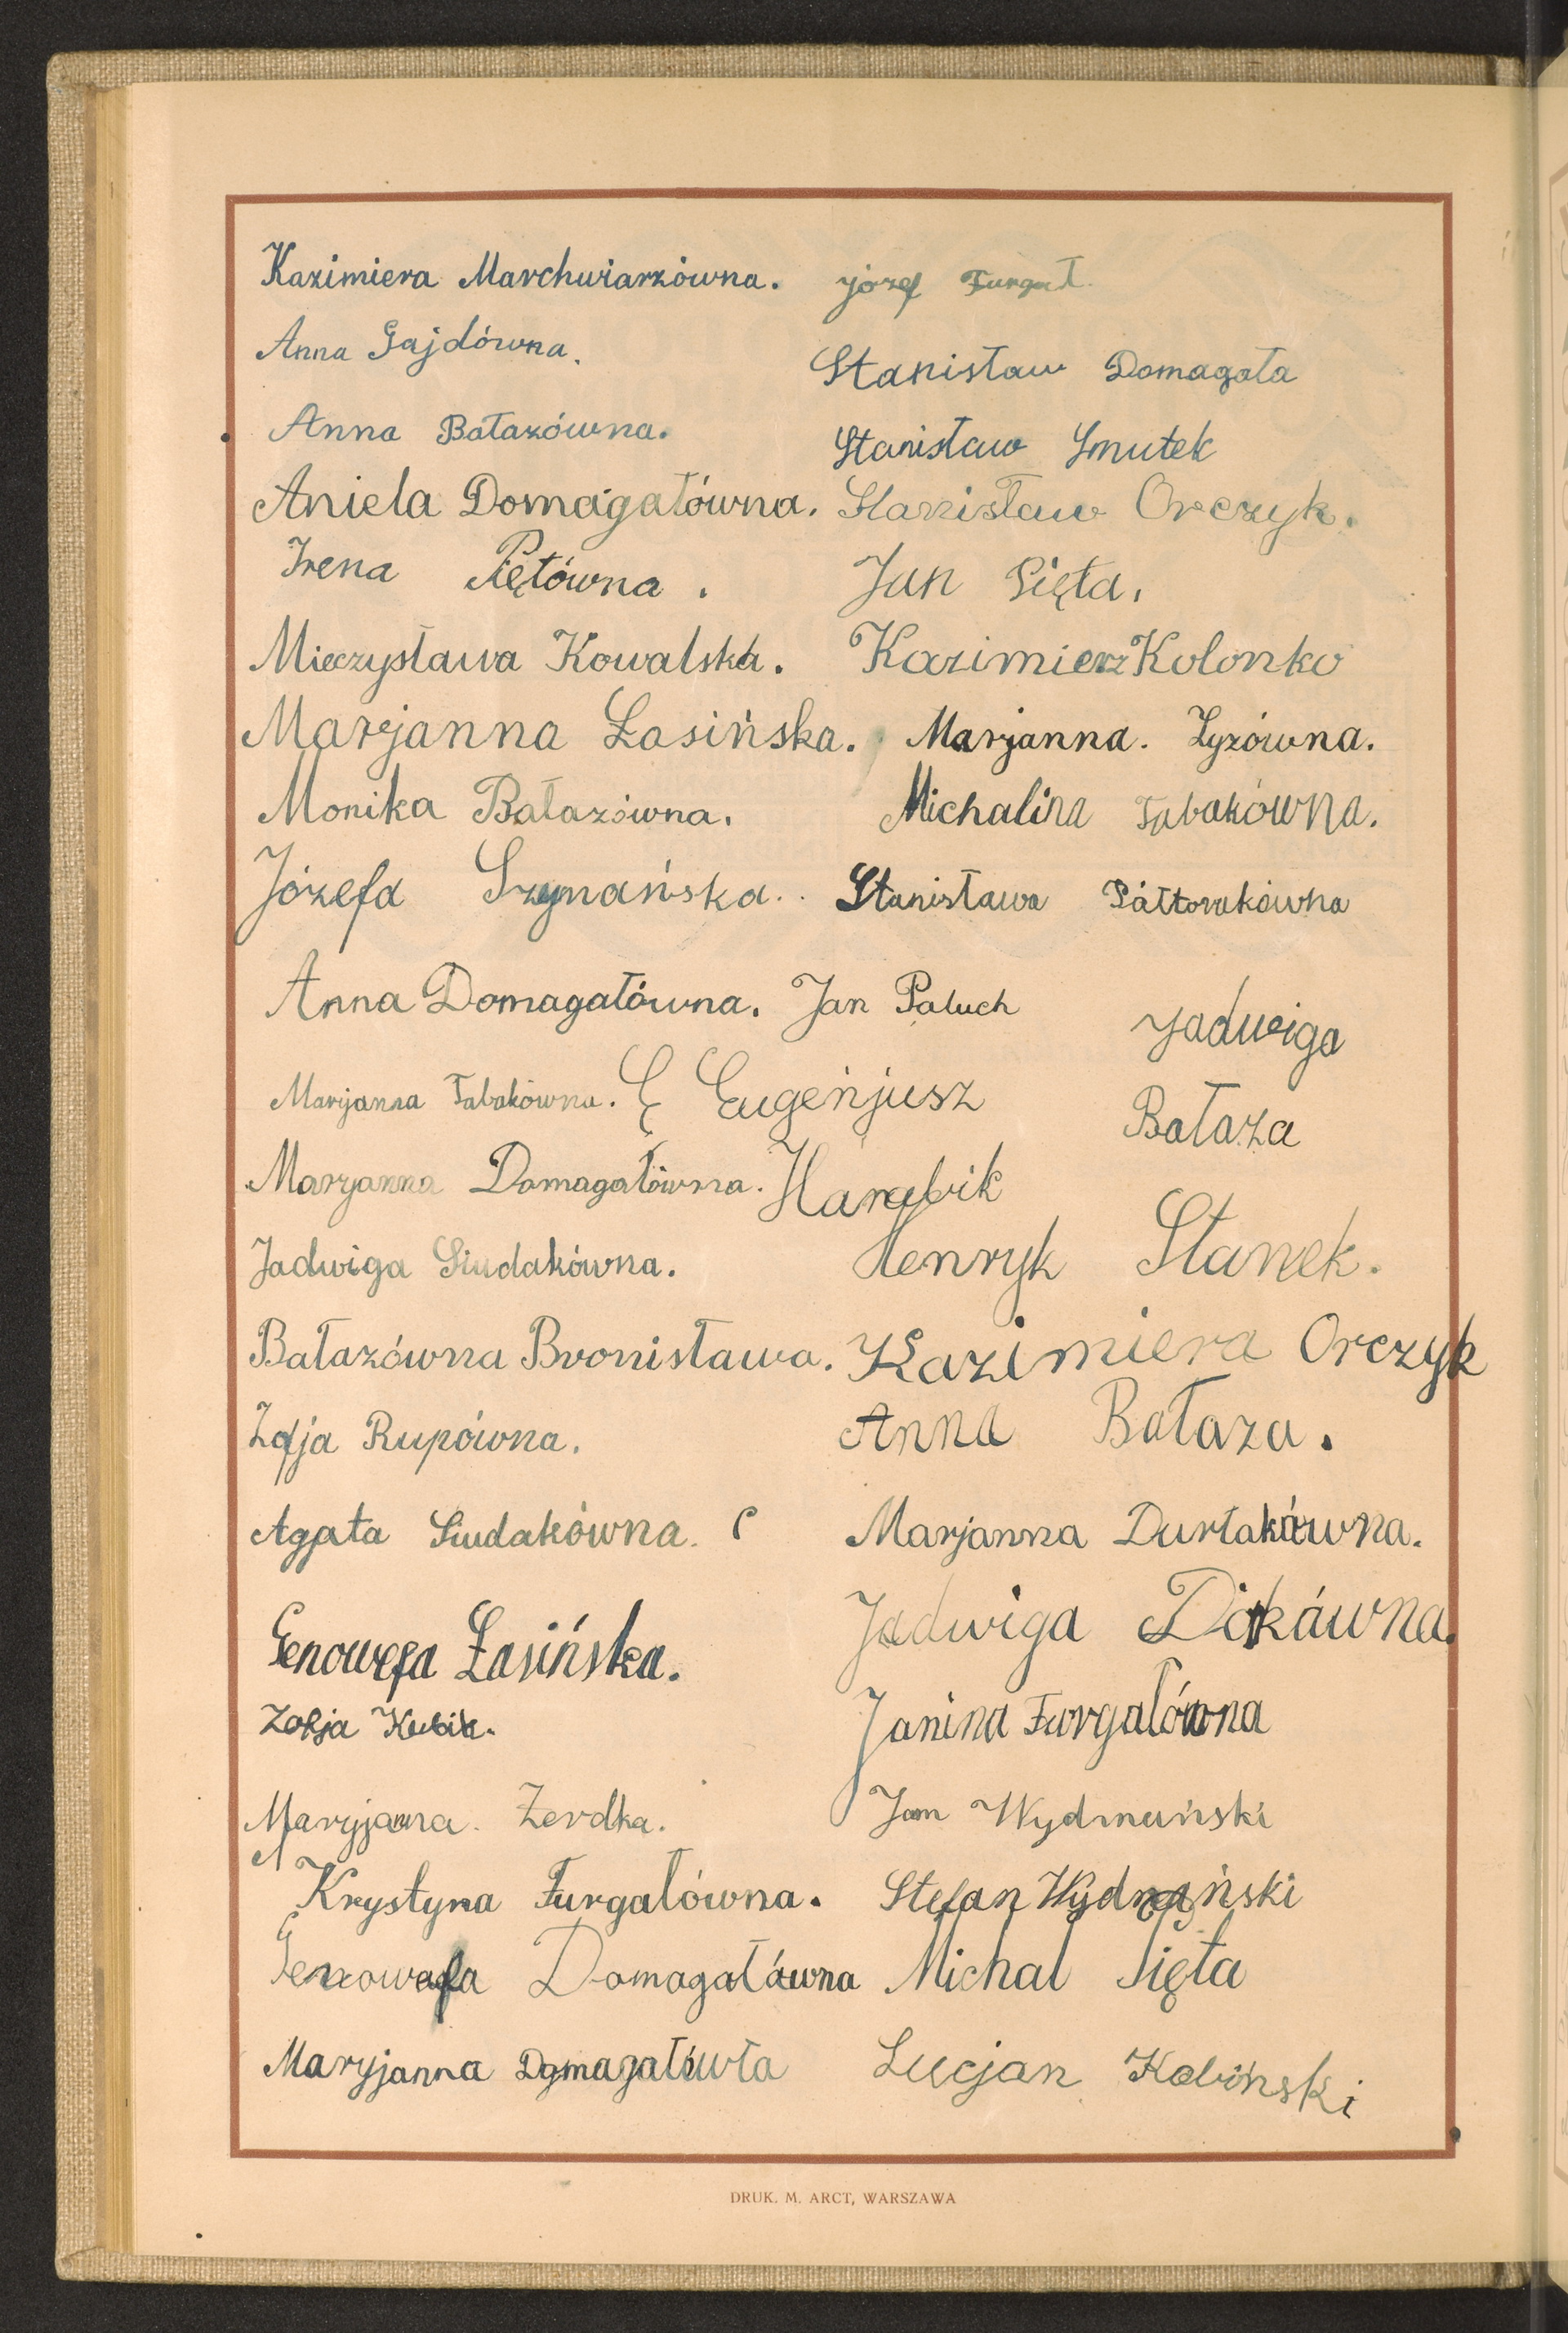 Kazimiera Marchwiarzówna.
Anna Gajdówna.
Anna Bałazówna.
Aniela Domagałówna.
Irena Piętówna.
Mieczysława Kowalska.
Marjanna Łasińska.
Monika Bałazówna.
Józefa Szymańska.
Anna Domagałówna.
Maryjanna Tabakówna.
Maryanna Domagałówna.
Jadwiga Siudakówna.
Bałazówna Bronisława.
Zofja Rupówna.
Agata Siudakówna.
Genowefa Łasińska.
Zofja Kubik.
Maryjanna. Zerdka.
Krystyna Furgałówna.
Genowefa Domagałówna
Maryjanna
Józef Furgał
Stanisław Domagała
Stanisław Smutek
Stanisław Orczyk.
Jan Sięta.
Kazimierz Kolonko
Marjanna. Zyzówna.
Michalina Tabakówna.
Stanisława Półtorakówna
Jan Paluch
Eugenjusz
Harabik
Jadwiga
Bałaza
Henryk Stanek.
Kazimiera Orczyk
Anna Bałaza.
Marjanna Durłakówna.
Jadwiga
Janina Furgałówna
Jan Wydmański
Stefan Wydmański
Michał Sięta
Lucjan
DRUK. M. ARCT, WARSZAWA